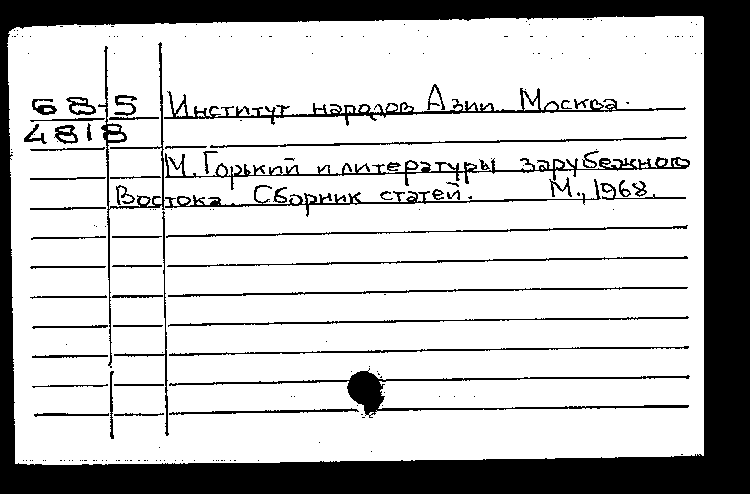 68-5 Институт народов Азии. Москва.
4818
М. Горький и литературы зарубежного
Востока. Сборник статей. М., 1968.